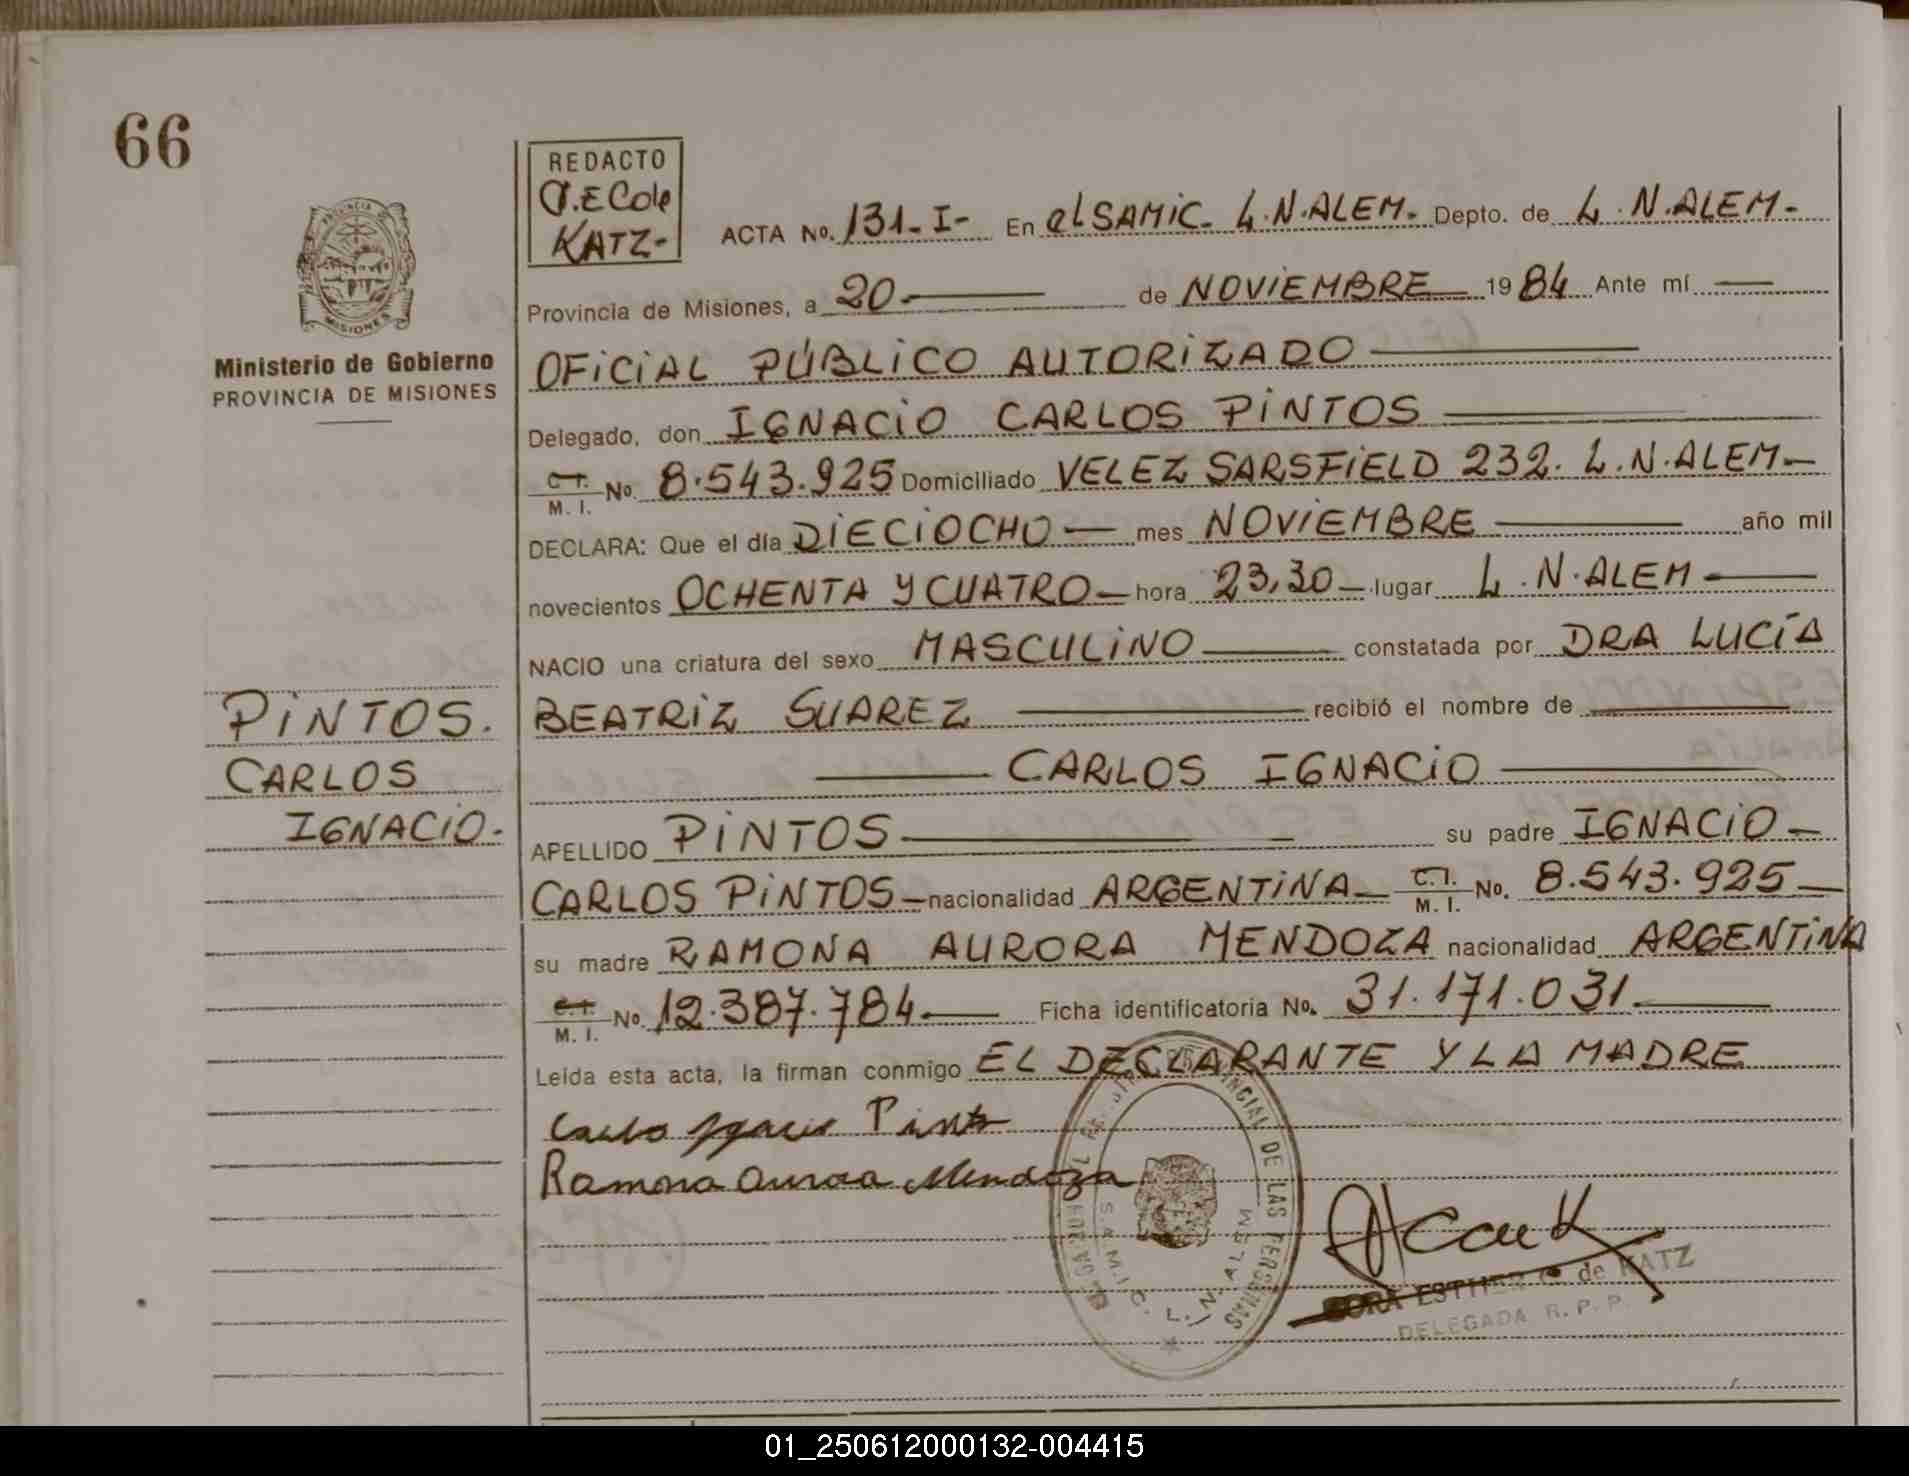 66
REDACTO
D.E Cde
KATZ-
ACTA No. 131-I- En el SAMIC- L.N.ALEM. Depto. de L.N.ALEM-
PROVINCIA DE
MISIONES
Provincia de Misiones, a 20 de NOVIEMBRE 1984 Ante mí
Ministerio de Gobierno
PROVINCIA DE MISIONES
OFICIAL PÚBLICO AUTORIZADO
Delegado, don IGNACIO CARLOS PINTOS
C.I. M. I. No. 8.543.925 Domiciliado VELEZ SARSFIELD 232. L.N.ALEM-
DECLARA: Que el día DIECIOCHO mes NOVIEMBRE año mil
novecientos OCHENTA Y CUATRO hora 23,30 lugar L.N.ALEM
NACIO una criatura del sexo MASCULINO constatada por DRA LUCÍA
BEATRIZ SUAREZ recibió el nombre de
CARLOS IGNACIO
PINTOS.
CARLOS
IGNACIO.
APELLIDO PINTOS su padre IGNACIO
CARLOS PINTOS nacionalidad ARGENTINA C.I. M. I. No. 8.543.925
su madre RAMONA AURORA MENDOZA nacionalidad ARGENTINA
C.I. M. I. No. 12.387.784 Ficha identificatoria No. 31.171.031
Leída esta acta, la firman conmigo EL DECLARANTE Y LA MADRE
Pinto
Ramona Aurora Mendoza
PROVINCIAL DE LAS PERSONAS
S.A.M.I.C. L.N. ALEM
ESTHER C. de KATZ
DELEGADA R. P. P.
01_250612000132-004415